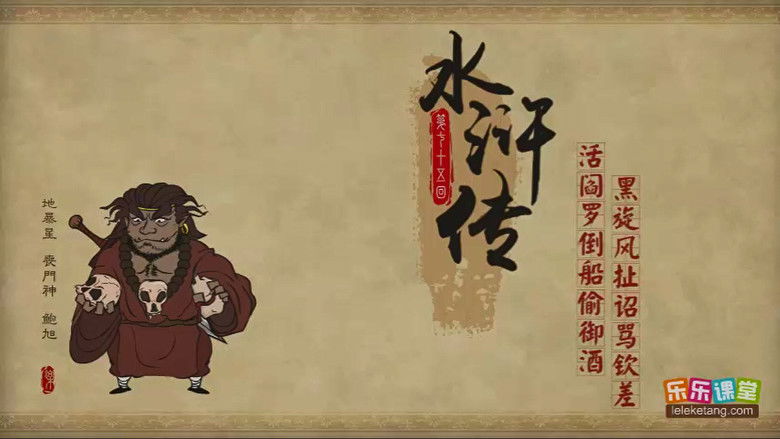 水浒传
第七十五回
活阎罗倒船偷御酒
黑旋风扯诏骂钦差
地暴星 丧門神 鲍旭
乐乐课堂
leleketang.com